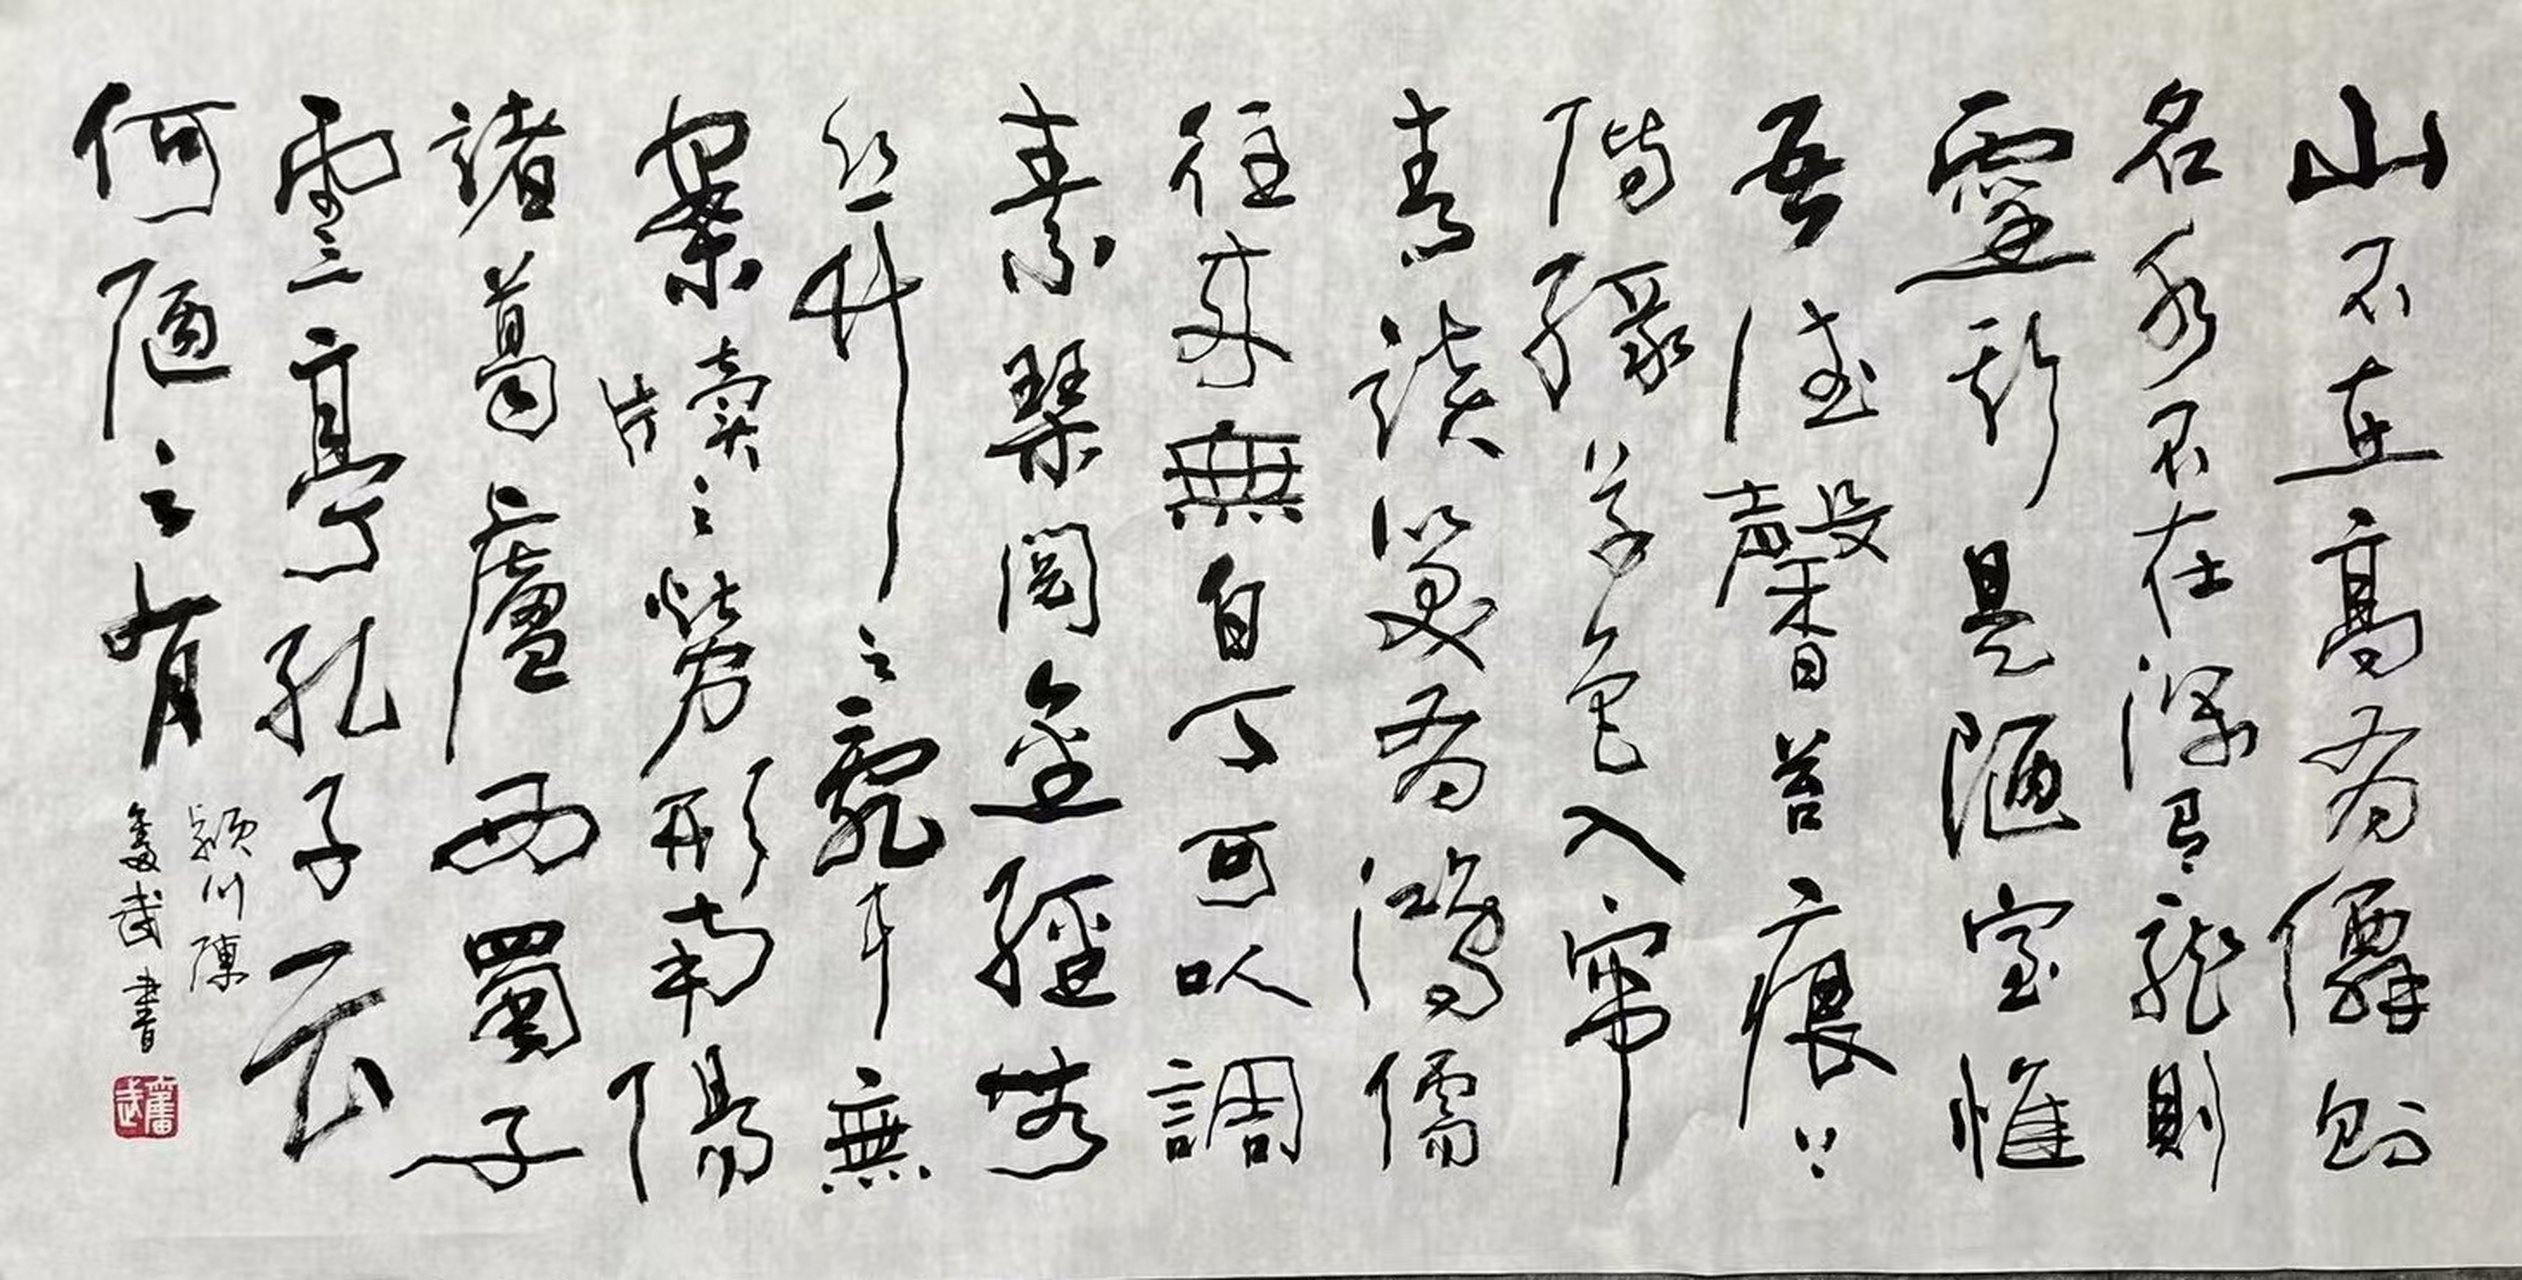 山不在高有僊則
名水不在深有龍則
靈斯是陋室惟
吾德馨苔痕上
階緑草色入帘
青談笑有鴻儒
往来無白丁可以調
素琴閱金經無
丝竹之亂耳無
案牘之勞形南陽
諸葛廬西蜀子
雲亭孔子云
何陋之有
潁川陳
武書